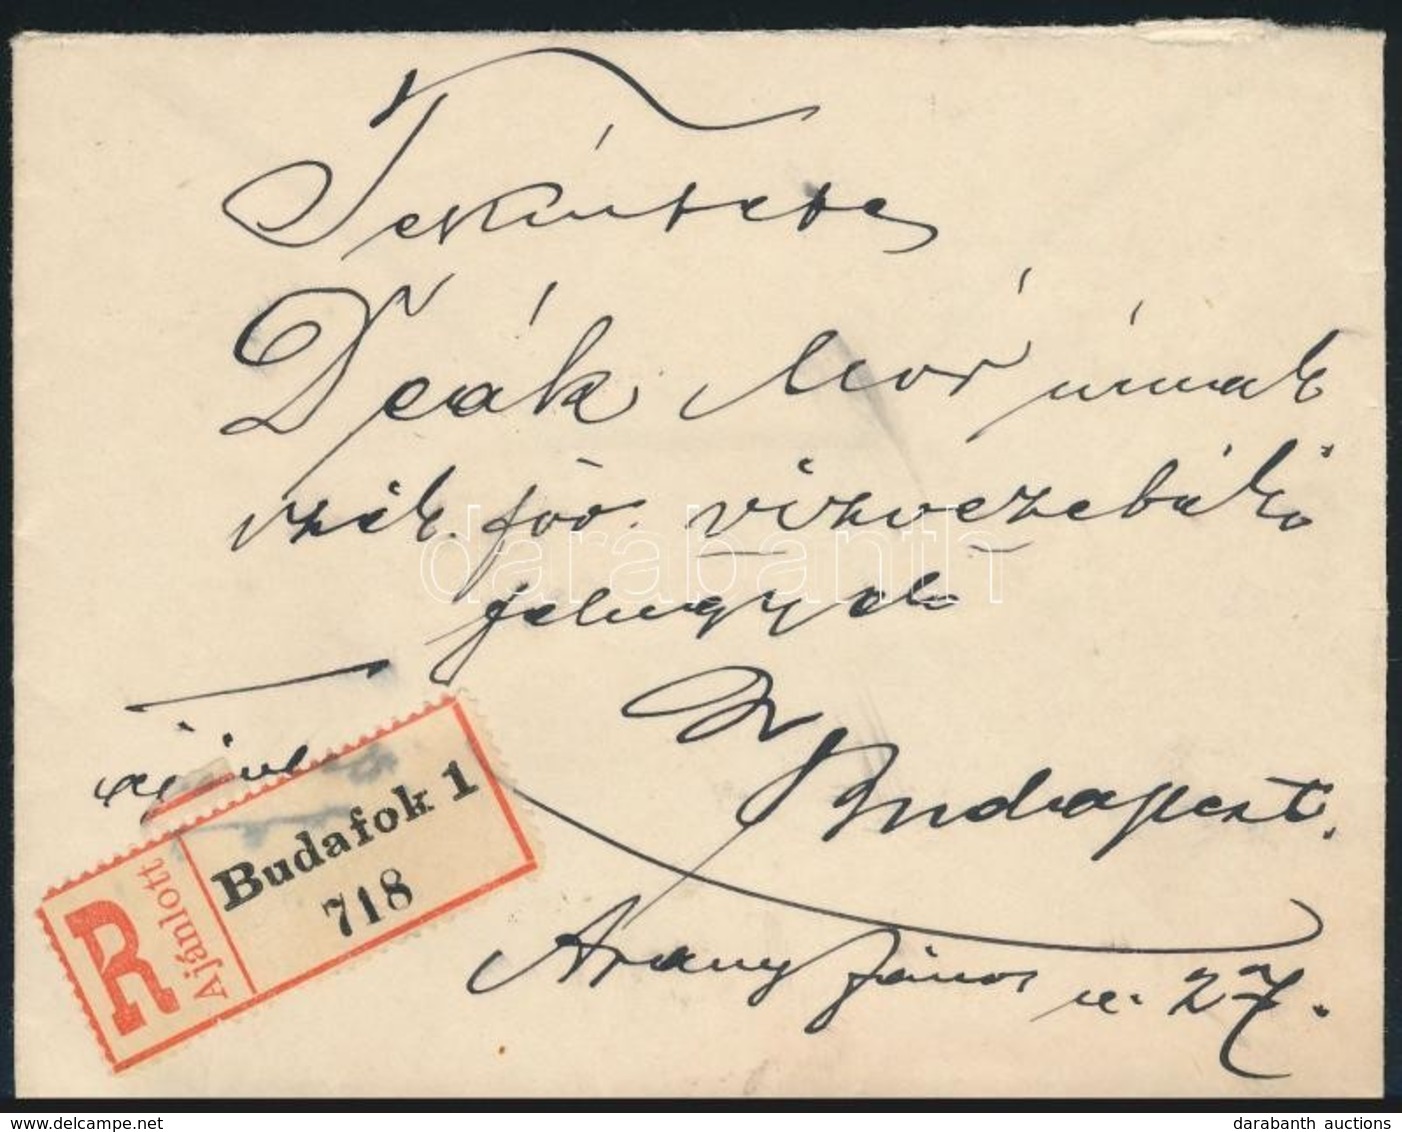 Tekintetes
Deák Mór úrnak
szék. föv. vízvezetéki
felügyelő
Budapest.
Arany János u. 27.
R
Ajánlott
Budafok 1
718
darabanth
darabanth auctions